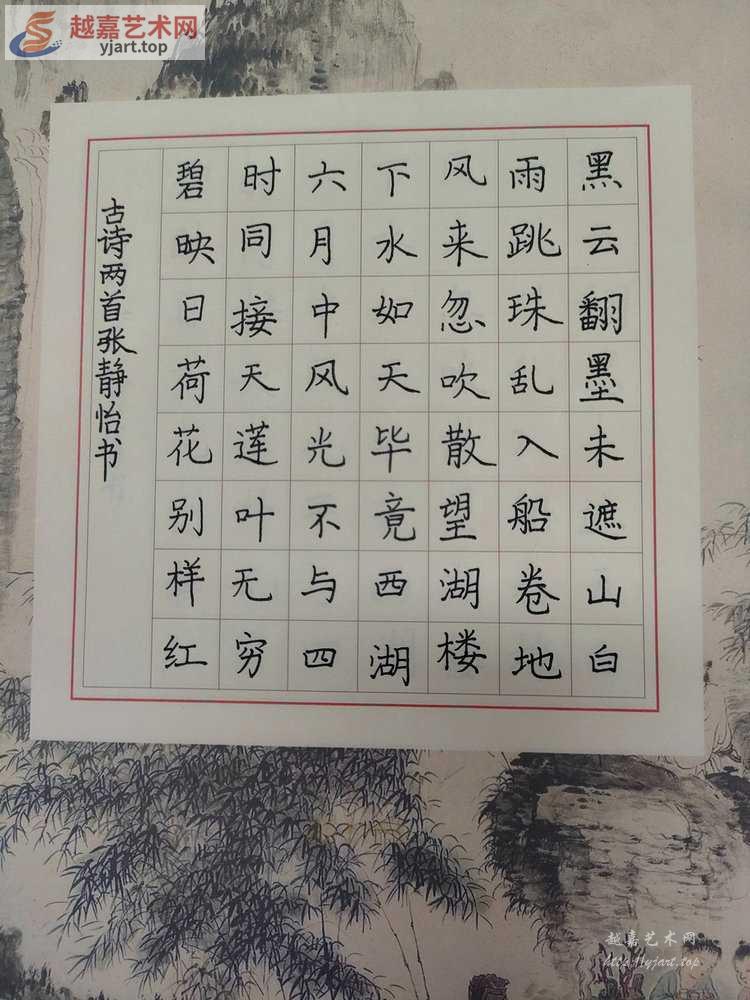 越嘉艺术网
yjart.top
黑云翻墨未遮山白
雨跳珠乱入船卷地
风来忽吹散望湖楼
下水如天毕竟西湖
六月中风光不与四
时同接天莲叶无穷
碧映日荷花别样红
古诗两首张静怡书
越嘉艺术网
http://yjart.top